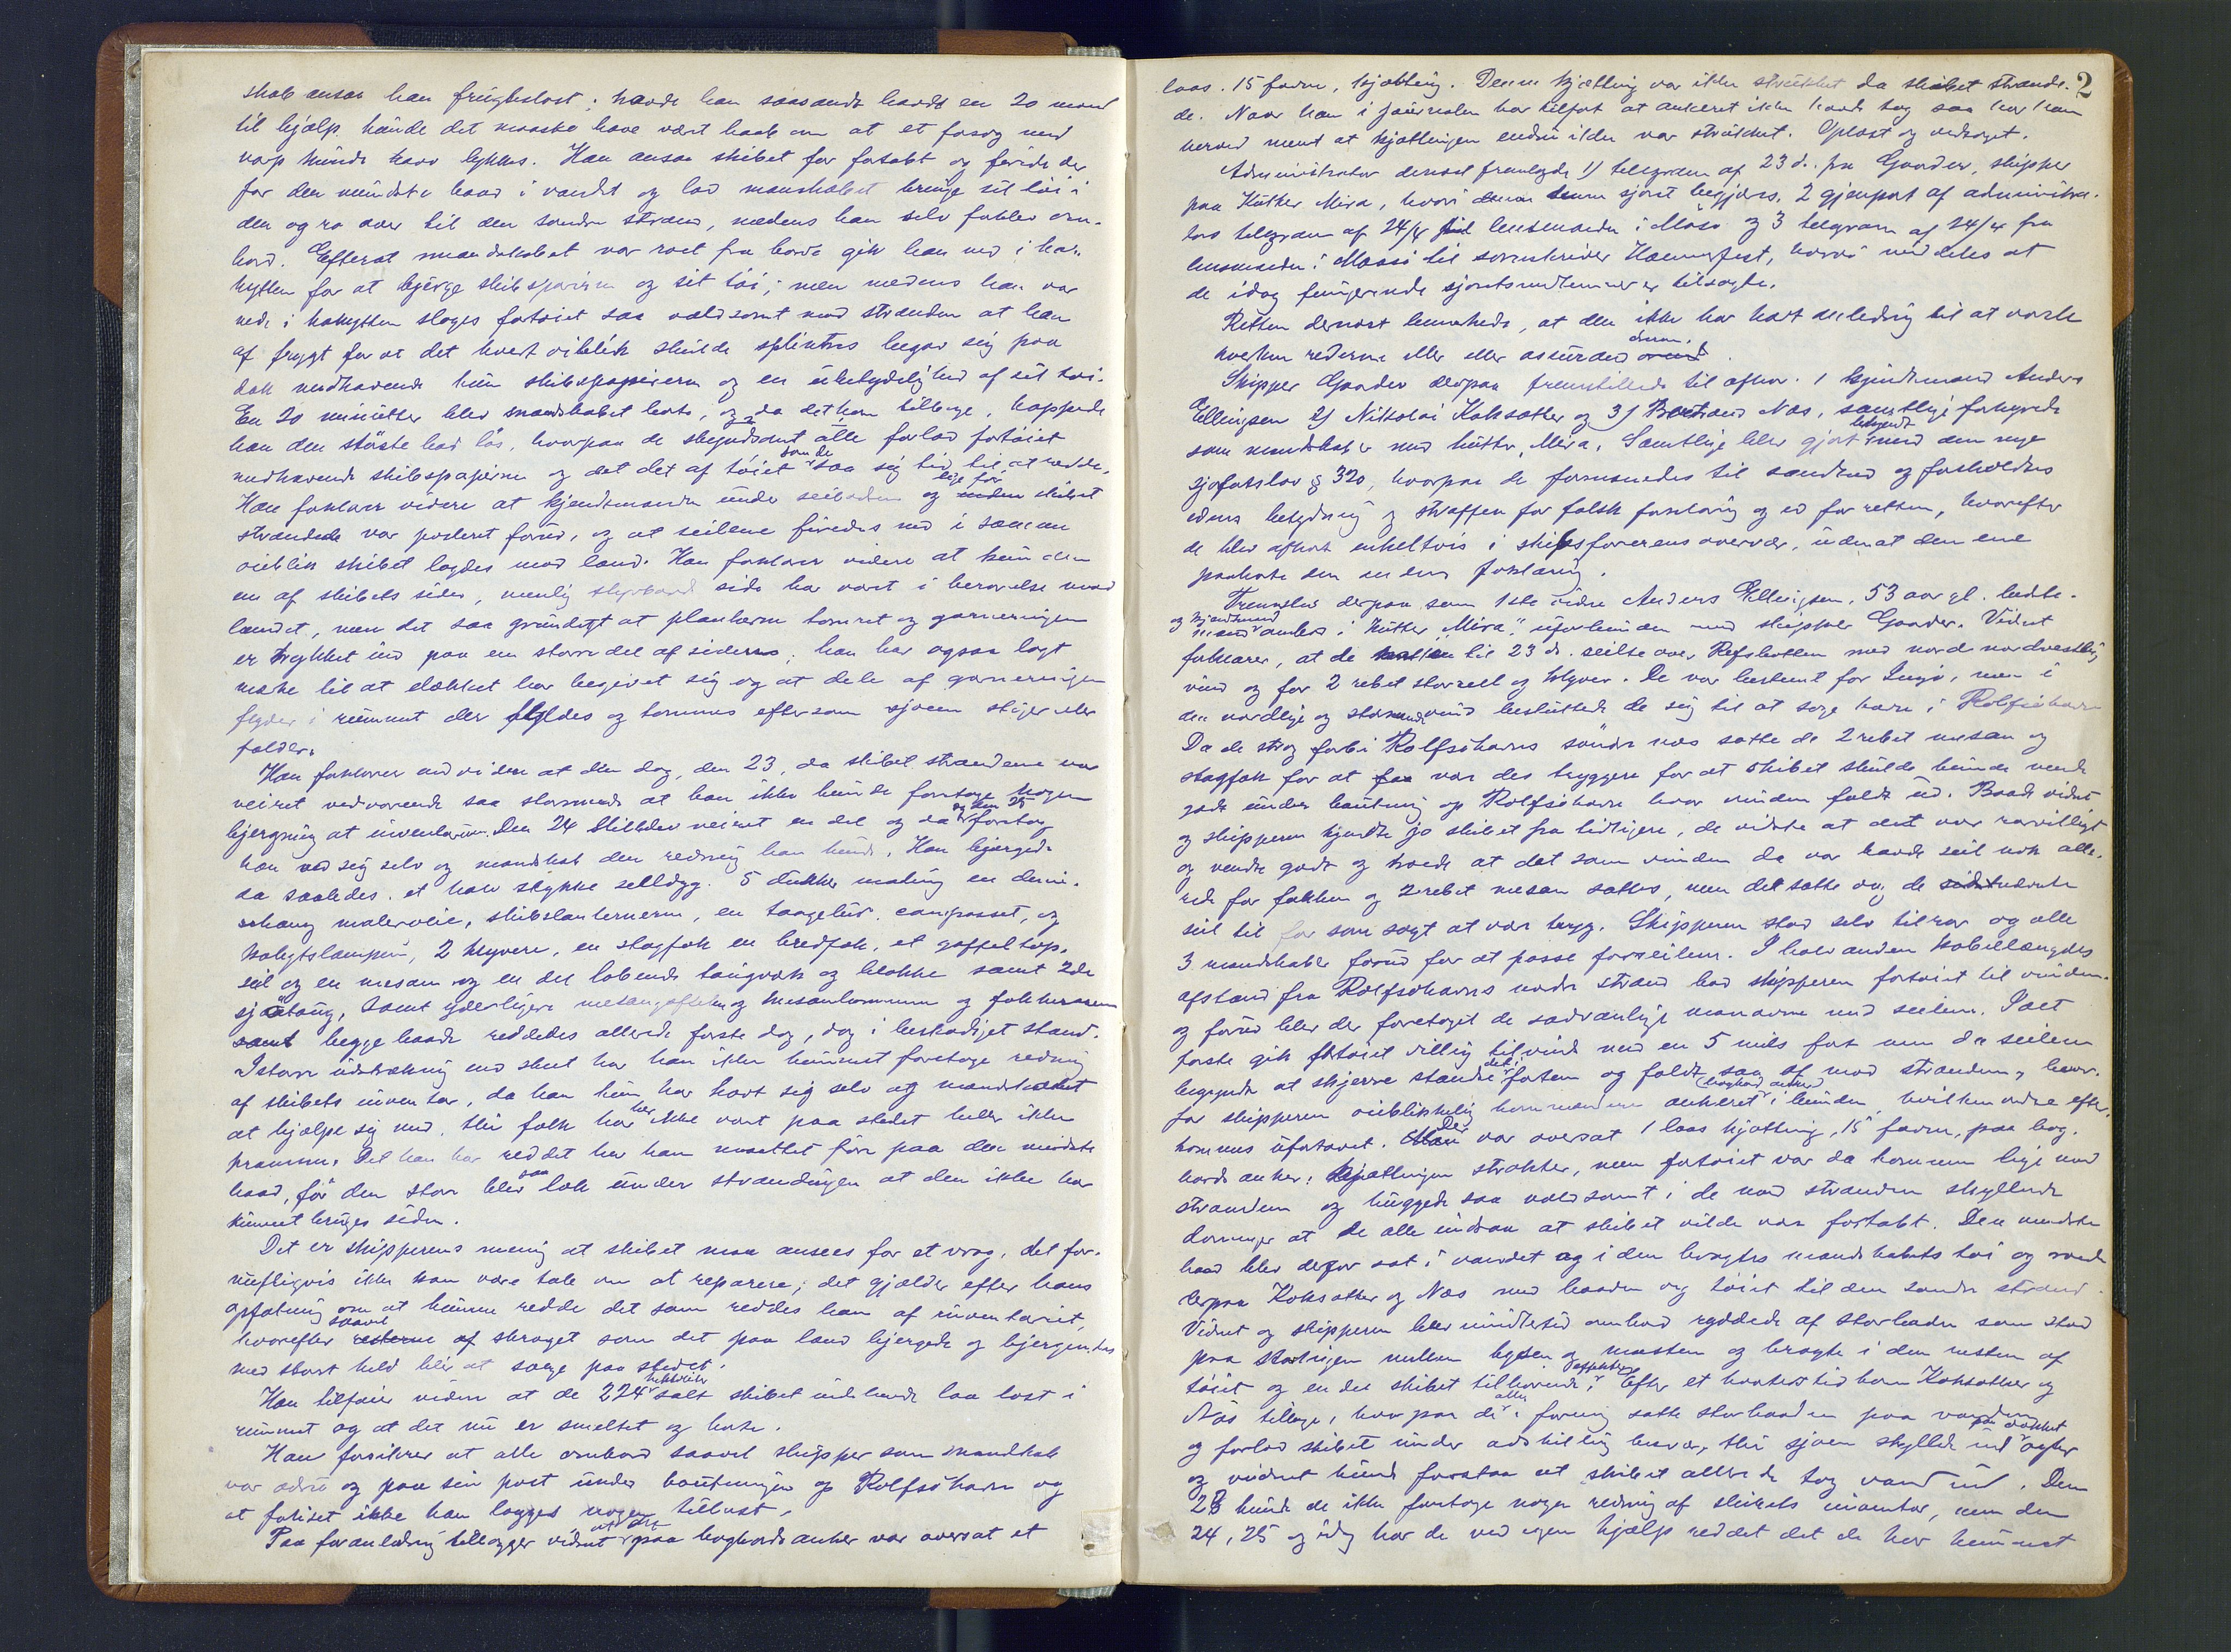 skab ansaa han frugtesløst; havde han saasandt havt en 20 mand
til hjælp kunde det maaske have vært haab om at et forsøg med
varp kunde have lykkes. Han ansaa skibet for fortabt og firede der
for den mindste baad i vandet og lod mandskabet bringe sit tøi i
den og ro over til den søndre strand, medens han selv forblev om-
bord. Efterat mandskabet var roet fra borde gik han ned i ka-
hytten for at bjerge skibspapirerne og sit tøi; men medens han var
nede i kahytten sloges fartøiet saa voldsomt mod stranden at han
af frygt for at det hvert øiblik skulde splintres begav sig paa
dæk medhavende kun skibspapirerne og en ubetydelighed af sit tøi.
En 20 minutter blev mandskabet borte, og da det kom tilbage, kappede
han den største baad løs, hvorpaa de alle forlod fartøiet
medhavende skibspapirerne og det af tøiet som de saa sig tid til at redde.
Han forklarer videre at kjendtmanden under seiladsen og lige før skibet
strandede var posteret forud, og at seilene firedes ned i samme
øieblik skibet lagdes mod land. Han forklarer videre at kun den
ene af skibets sider, nemlig styrbord side har vært i berørelse med
landet, men det saa grundigt at plankerne tømret og garneringen
er trykket ind paa en større del af siderne; han har ogsaa lagt
mærke til at dækket har begivet sig og at dele af garneringen
flyder i rummet der fyldes og tømmes eftersom sjøen stiger eller
falder.
Han forklarer endvidere at den dag, den 23, da skibet strandede var
veiret vedvarende saa stormende at han ikke kunde foretage nogen
bjergning af inventarium. Den 24 stilledes veiret en del og da og den 25 foretog
han ved sig selv og mandskab den redning han kunde. Han bjergede
da saaledes et halv stykke seildug. 5 dunker maling en demi-
johang maleroie, skibslanternerne, en taagelur, compasset, og
kahytslampen, 2 klyvere, en stagfok en bredfok, et gaffeltop-
seil og en mesan og en del løbende taugværk og blokke samt 2de
sjøtaug, samt yderligere mesangaffelen og mesanbommen og fokkeraaen
samt begge baade reddedes allerede første dag, dog i beskadiget stand.
I større udstrækning end skeet har han ikke kunnet foretage redning
af skibets inventar, da han kun har havt sig selv og mandskabet
at hjælpe sig med, thi folk har her ikke vært paa stedet heller ikke
pramme. Det han har reddet har han maattet føre paa den mindste
baad, før den større blev saa læk under strandingen at den ikke har
kunnet bruges siden.
Det er skipperens mening at skibet maa ansees for et vrag, det for-
nuftigvis ikke kan være tale om at reparere; det gjælder efter hans
opfatning om at kunne redde det som reddes kan af inventariet,
hvorefter saavel resterne af skroget som det paa land bjergede og bjergendes
med størst held blir at sælge paa stedet.
Han tilføier videre at de 224 hektoliter salt skibet indehavde laa løst i
rummet og at det nu er smeltet og borte.
Han forsikrer at alle ombord saavel skipper som mandskab
var ædru og paa sin post under bautningen op Rolfsöhavn og
at forliset ikke kan lægges nogen tillast.
Paa foranledning tillægger vidnet at det paa bagbords anker var oversat et
2
laas. 15 favne, kjætting. Denne kjætting var ikke strækket da skibet strande-
de. Naar han i journalen har tilført at ankeret ikke havde tag saa har han
herved ment at kjættingen endnu ikke var strukket. Oplæst og vedtaget.
Administrator dernæst fremlagde 1) telegram af 23 d. fra Gaader, skipper
paa Kutter Mira, hvori denne sjøret begjæres, 2 gjenpart af administra-
tors telegram af 24/4 til lensmanden i Måsø og 3 telegram af 24/4 fra
lensmanden i Maasö til sorenskriver Hammerfest, hvori meddeles at
de idag fungerende sjøretsmedlemmer er tilsagte.
Retten dernæst bemærkede, at den ikke har havt anledning til at varsle
hverken rederne eller assurandørerne.
Skipper Gaader derpaa fremstillede til afhør. 1 kjendtmand Anders
Ellingsen 2) Nikolai Koksæther og 3) Bertrand Næs, samtlige forhyrede
som mandskaber med kutter Mira. Samtlige blev gjort bekjendt med den nye
sjøfartslov § 320, hvorpaa de formanedes til sandhed og foreholdtes
edens betydning og straffen for falsk forklaring og ed for retten, hvorefter
de blev afhørt enkeltvis i skibsførerens overvær, udenat den ene
paahørte den andens forklaring.
Fremstod derpaa som 1ste vidne Anders Ellingsen, 53 aar gl. bedste-
mand og kjendtmand ombord i kutter "Mira," ubeslægtet med skipper Gaader. Vidnet
forklarer, at de til 23 ds. seilte over Refsbotten med nord nordvestlig
vind og for 2 rebet storseil og klyver. De var bestemt for Ingö, men i
den nordlige og stormende vind besluttede de sig til at søge havn i Rolfsöhavn
Da de strøg forbi Rolfsöhavns søndre næs satte de 2 rebet mesan og
stagfok for at være des tryggere for at skibet skulde kunne vende
godt under bautning op Rolfsöhavn hvor vinden faldt ud. Baade vidnet
og skipperen kjendte jo skibet fra tidligere, de vidste at det var rorvilligt
og vendte godt og troede at det som vinden da var havde seil nok alle-
rede før fokken og 2 rebet mesan sattes, men det satte og de nævnte
seil til for som sagt at være tryg. Skipperen stod selv tilrors og alle
3 mandskaber forud for at passe forseilene. I halv anden kabellængdes
afstand fra Rolfsöhavns nordre strand lod skipperen fartøiet til vinden
og forud blev der foretaget de sædvanlige manøvre med seilene. I det
første gik fartøiet villig tilvinds med en 5 mils fart men da seilene
begyndte at skjerre standsede farten og faldt saa af mod stranden, hvor-
for skipperen øieblikkelig kommanderte ankeret (bagbord anker) i bunden, hvilken ordre efter-
kommes ufortøvet. Der var oversat 1 laas kjætting, 15 favne, paa bag-
bords anker. Kjættingen strakter, men fartøiet var da kommen lige ind
stranden og huggede saa voldsomt i de mod stranden skyllende
dønninger at de alle indsaa at skibet vilde være fortabt. Den mindste
baad blev derfor sat i vandet og i den bragtes mandskabets tøi og roede
derpaa Koksæther og Næs med baaden og tøiet til den søndre strand.
Vidnet og skipperen blev imidlertid ombord ryddede af storbaden som stod
paa stortrigen mellem bysen og masten og bragte i den resten af
tøiet og en del skibet tilhørende effekter. Efter et kvarters tid kom Koksæther og
Næs tilbage, hvorpaa de alle i forening satte storbaaden paa vandet
og forlod skibet under adskillig besvær, thi sjøen skyllede ind paa dækket agter
og vidnet kunde forstaa at skibet allerede tog vand ind. Den
23 kunde de ikke foretage nogen redning af skibets inventar, men den
24, 25 og idag har de ved egen hjælp reddet det de har kunnet